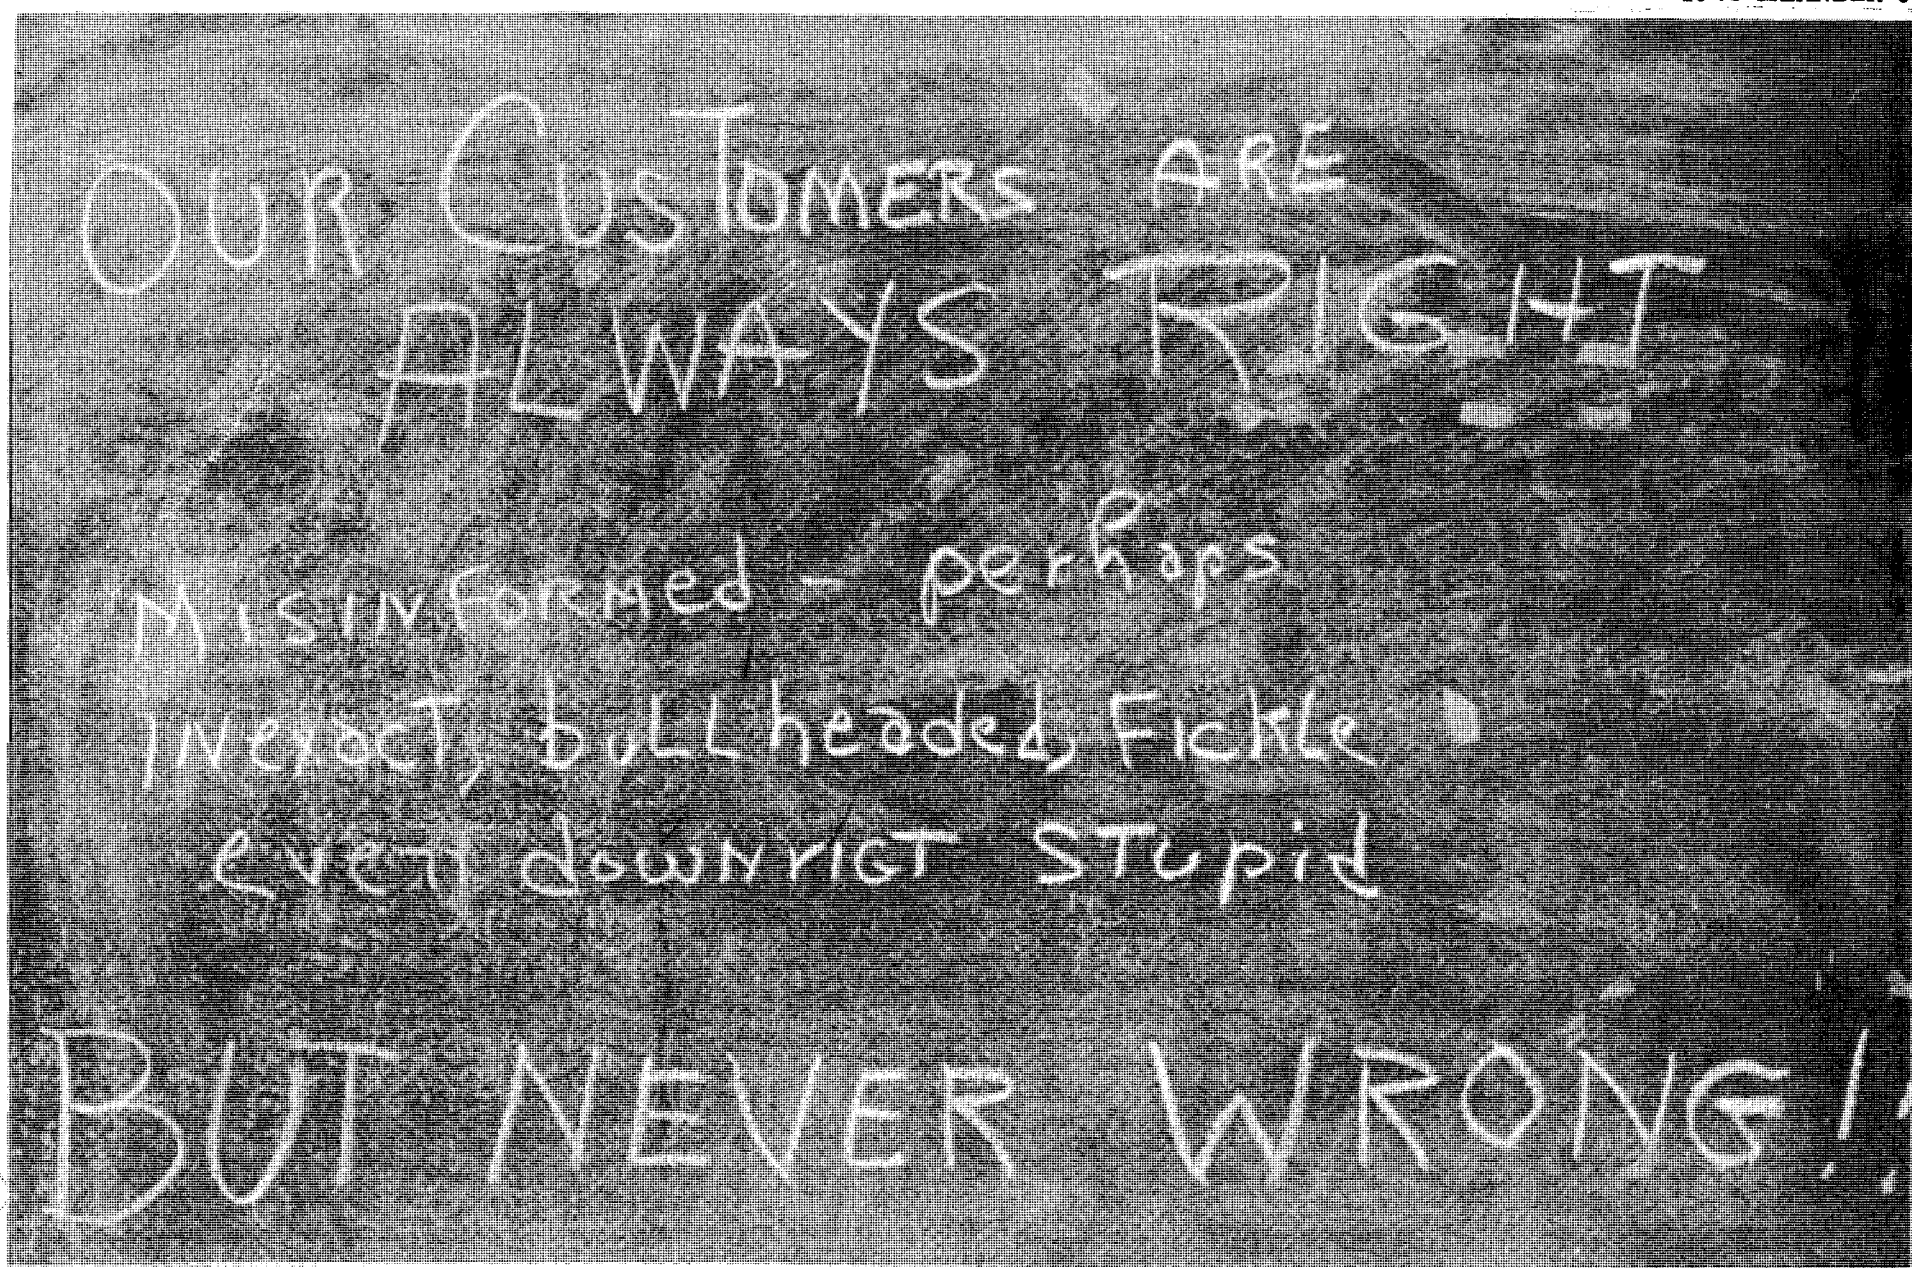 OUR CUSTOMERS ARE
ALWAYS RIGHT
MISINFORMed - perhaps
INexacT, buLLheaded, FIckLe
even dowNrIGT STupid
BUT NEVER WRONG!!